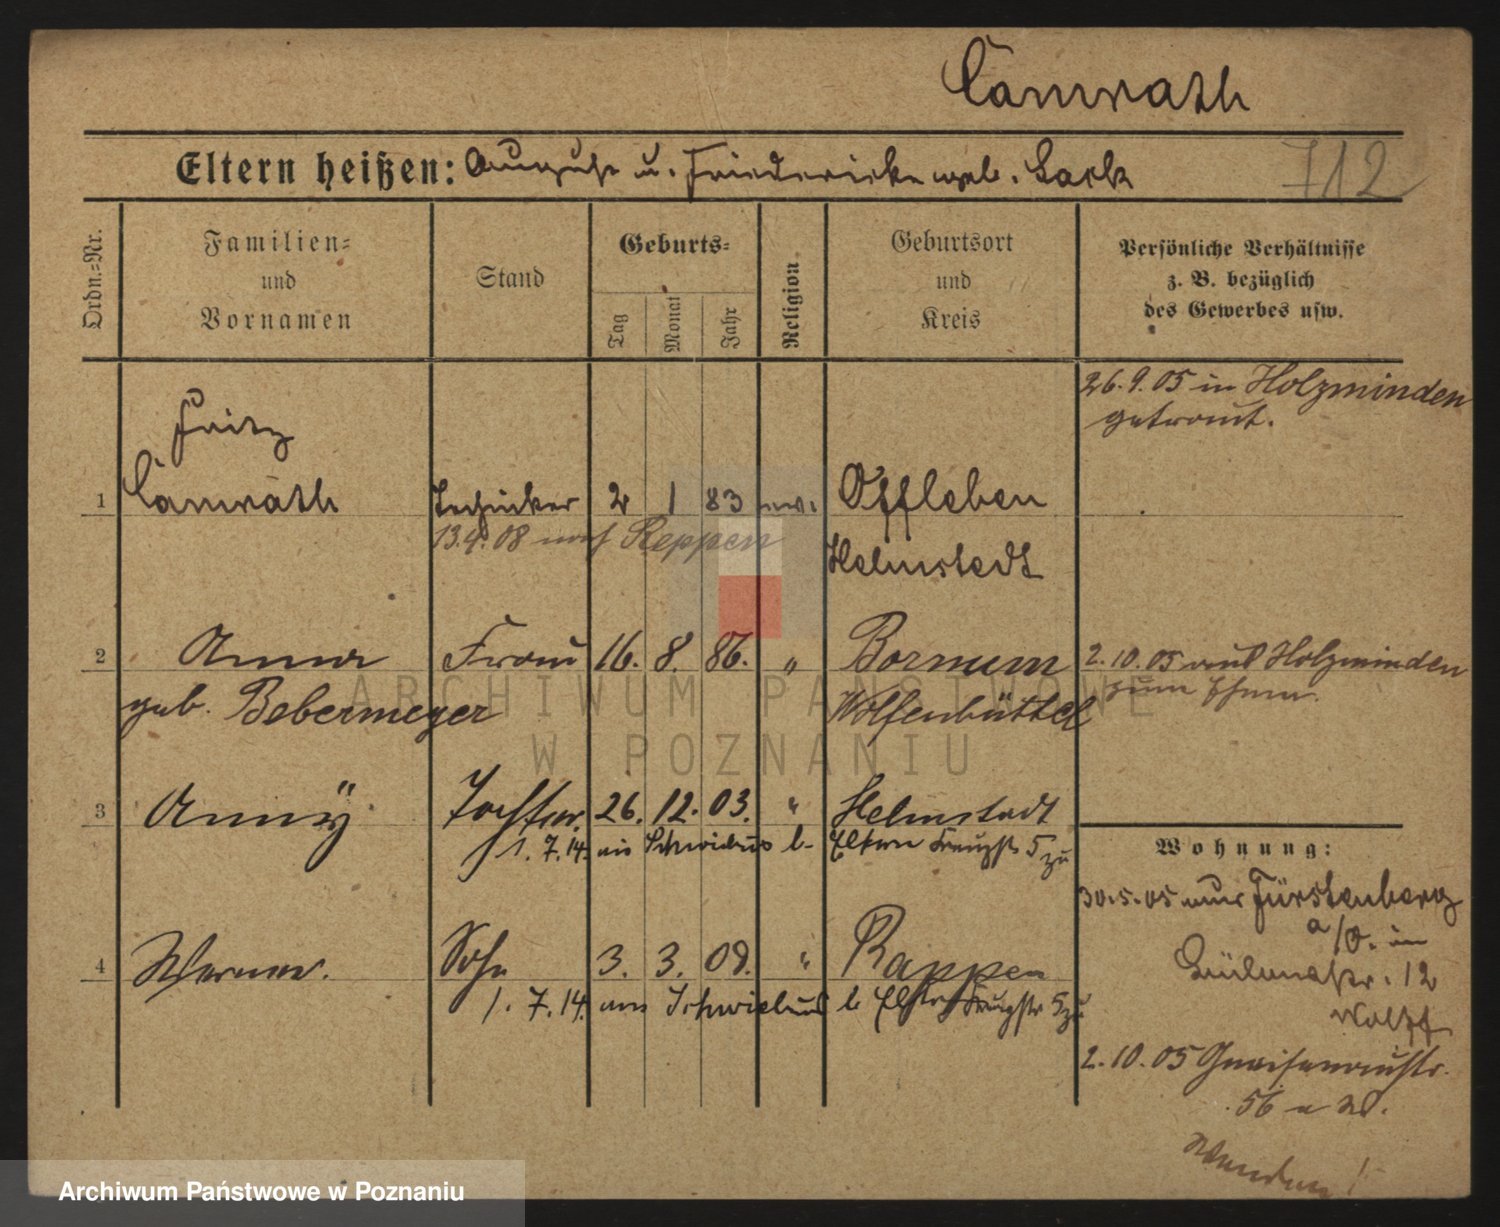 Camrath
Eltern heißen: August u. Friedericke geb. Sack
712
Ordn.-Nr.
Familien-
und
Vornamen
Stand
Geburts-
Tag
Monat
Jahr
Religion
Geburtsort
und
Kreis
Persönliche Verhältnisse
z. B. bezüglich
des Gewerbes usw.
26.9.05 in Holzminden
getraut.
Fritz
1 Camrath Techniker 2 1 83 ev. Offleben
13.4.08 nach Reppen Helmstedt
2 Anna Frau 16. 8. 86. " Bornum 2.10.05 aus Holzminden
geb. Bebermeyer Wolfenbüttel zum Ehem.
3 Anny Tochter 26. 12. 03. " Helmstedt
1.7.14. aus Schwiebus b. Eltern Kreuzstr 5 zu
Wohnung:
30.5.05 aus Fürstenberg
a/O. in
12
Wolff
4 Werner. Sohn 3. 3. 09. " Reppen
1.7.14. aus Schwiebus b Eltern Kreuzstr 5 zu
2.10.05 Gneisenaustr.
56
Wenden!
ARCHIWUM PAŃSTWOWE
W POZNANIU
Archiwum Państwowe w Poznaniu